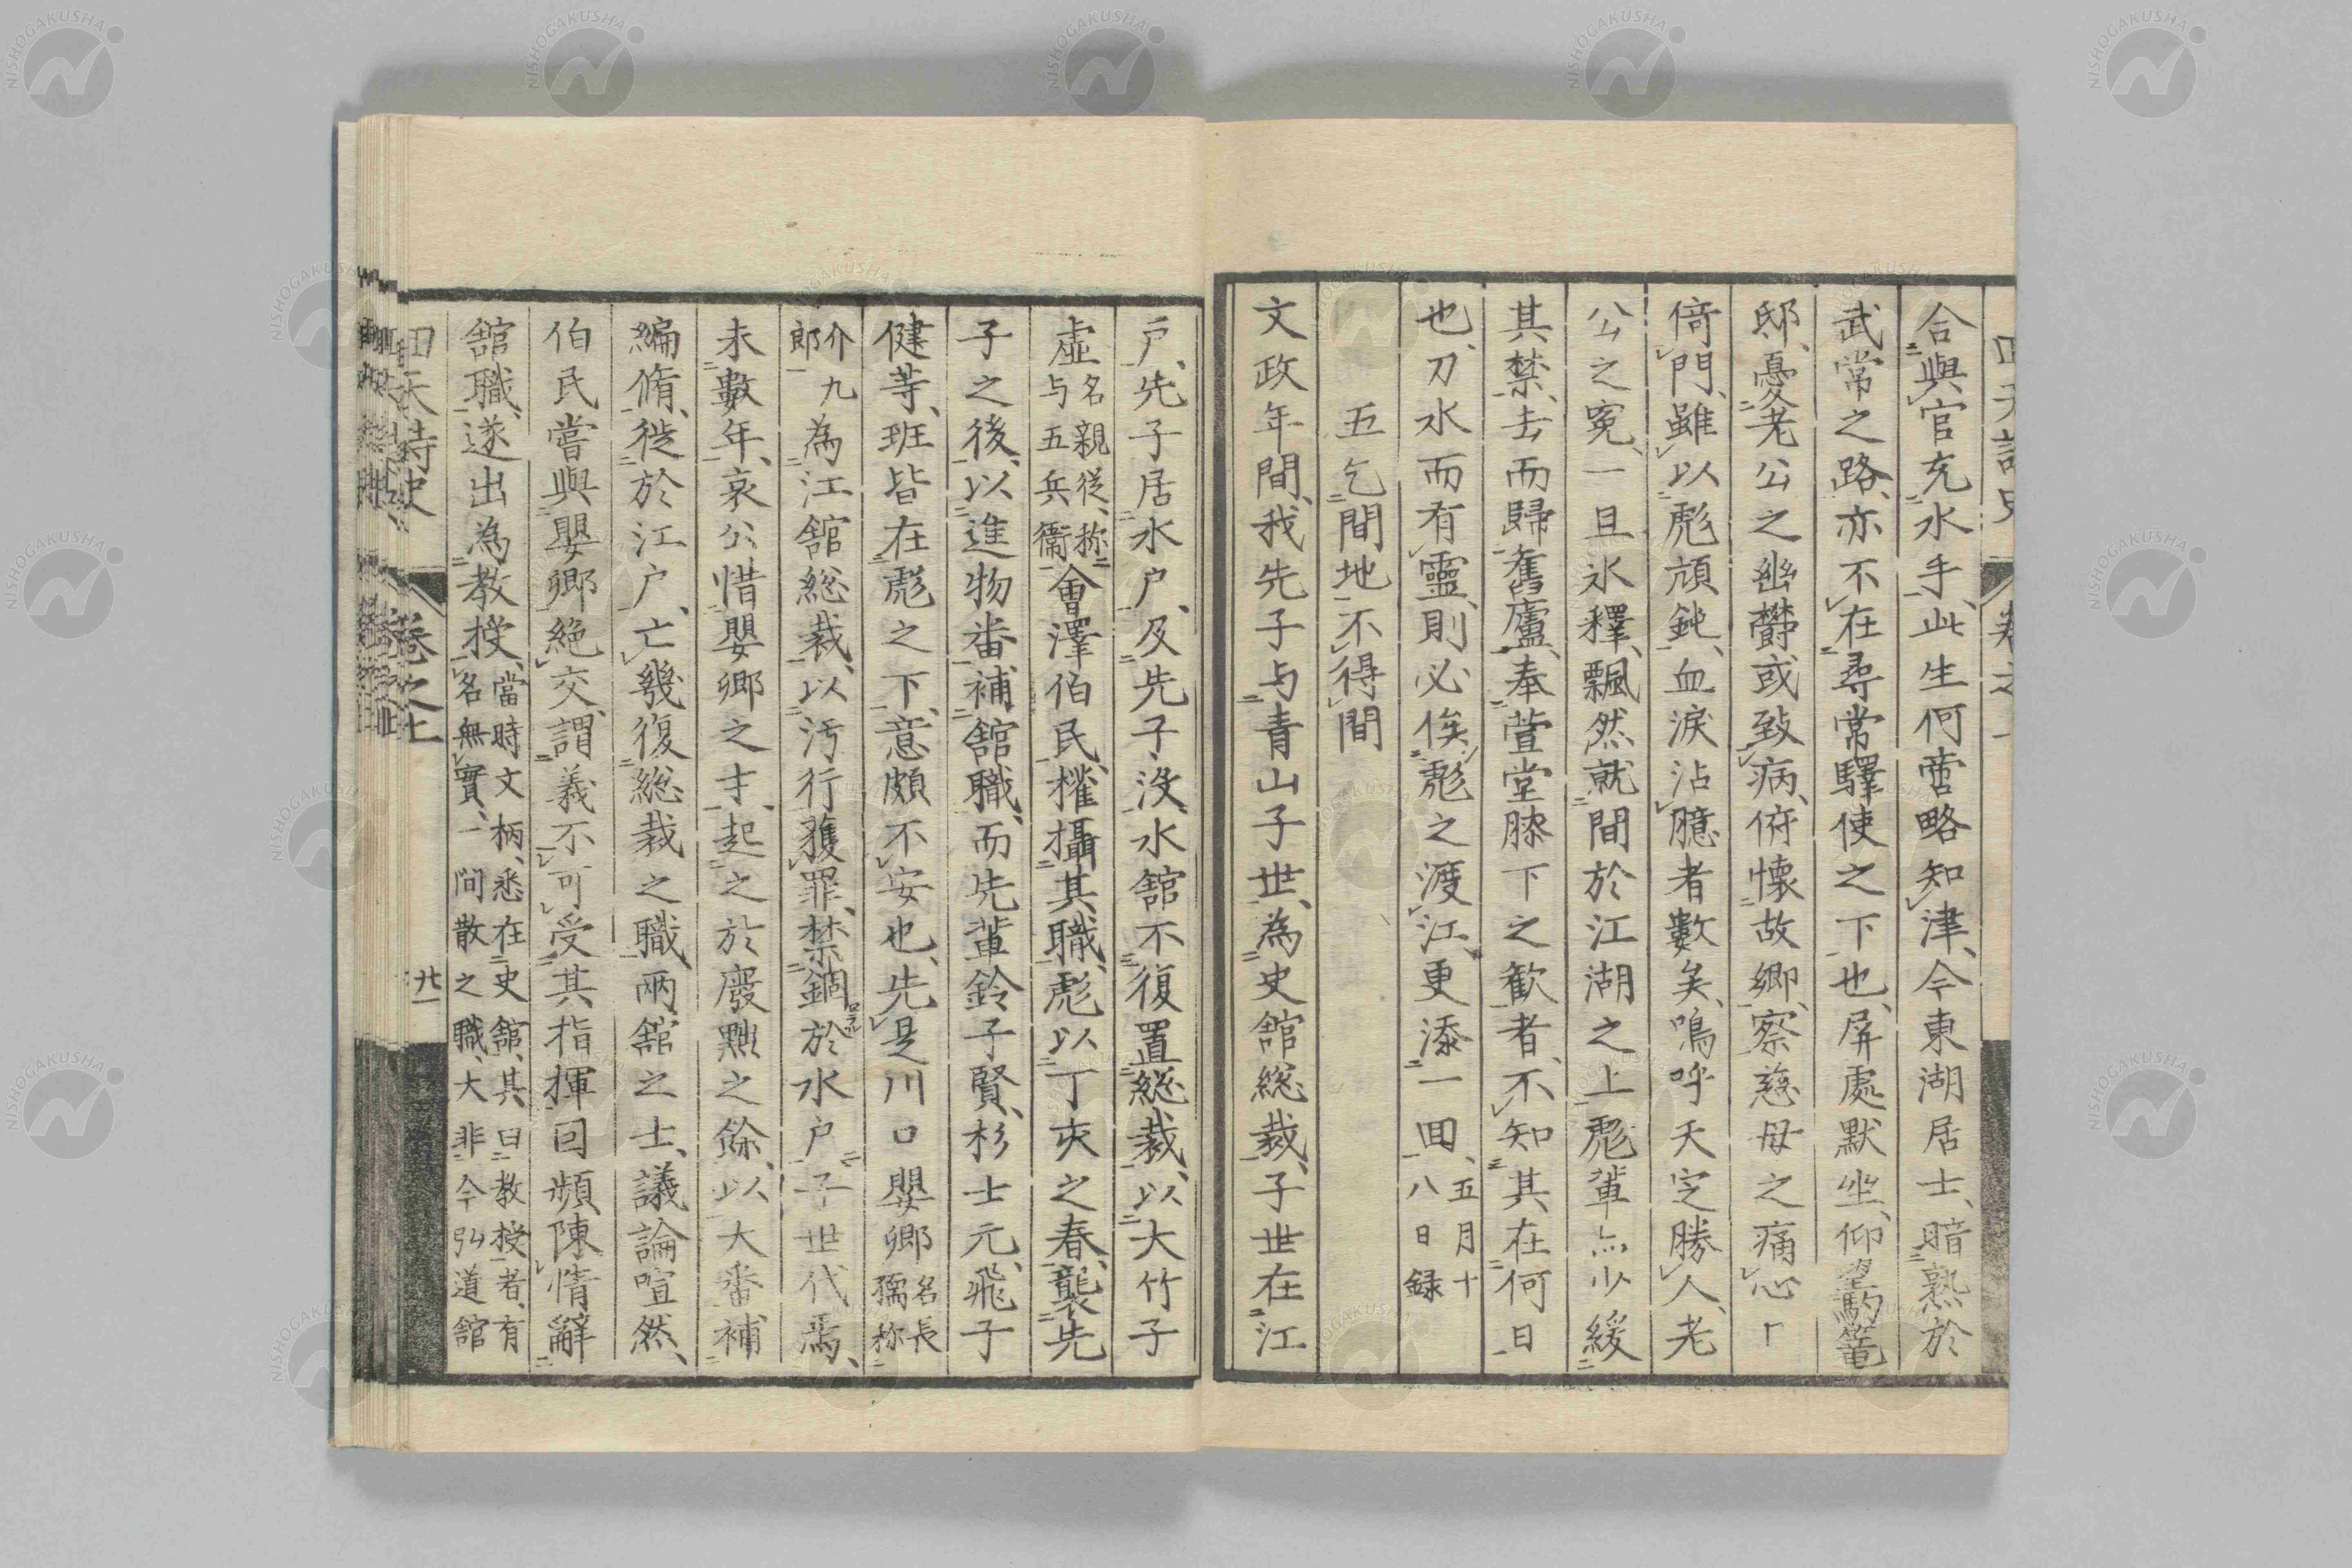 合與官充水手、此生何啻略知津、今東湖居士、暗熟於
武常之路、亦不在尋常驛使之下也、屏處默坐、仰望鞫篭
邸、憂老公之幽欝或致病、俯懷故郷、察慈母之痛心
倚門、雖以彪頑鈍、血淚沾臆者數矣、嗚呼天定勝人、老
公之冤、一旦氷釋、飄然就間於江湖之上、彪輩亦少緩
其禁、去而歸舊廬、奉萱堂膝下之歓者、不知其在何日
也、刀水而有靈、則必俟彪之渡江、更添一回、五月十八日録
五乞間地不得間
文政年間、我先子与青山子世、為史館総裁、子世在江
戸、先子居水戸、及先子没、水館不復置総裁、以大竹子
虛名親従、称与五兵衞會澤伯民、権攝其職、彪以丁亥之春、襲先
子之後、以進物番補館職、而先輩鈴子賢、杉士元、飛子
健等、班皆在彪之下、意頗不安也、先是川口嬰卿名長孺称
介九郎為江館総裁、以汚行獲罪、禁錮於水戸、子世代焉、
未數年、哀公惜嬰卿之才、起之於廢黜之餘、以大番補
編脩、徙於江戸、亡幾復総裁之職、兩館之士、議論喧然、
伯民嘗與嬰卿絶交、謂義不可受其指揮回頻陳情辭
館職、遂出為教授、當時文柄、悉在史館、其曰教授者、有名無實、一間散之職、大非今弘道館
回天詩史 卷之上 廿一